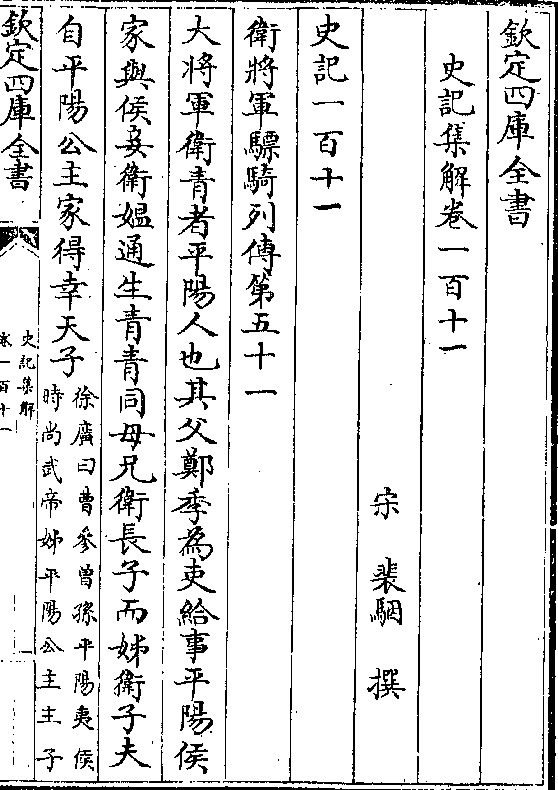 欽定四庫全書
史記集解卷一百十一
宋 裴駰 撰
史記一百十一
衛將軍驃騎列傳第五十一
大將軍衛青者平陽人也其父鄭季為吏給事平陽侯
家與侯妾衛媼通生青青同母兄衛長子而姊衛子夫
自平陽公主家得幸天子
徐廣曰曹參曾孫平陽夷侯
時尚武帝姊平陽公主主子
欽定四庫全書
史記集解
卷一百十一